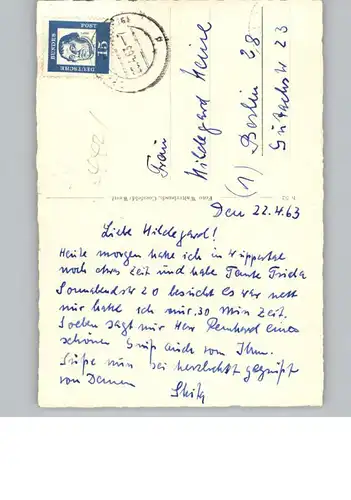 DEUTSCHE
BUNDESPOST
15
Frau
Hildegard Heine
(1) Berlin
23
Foto
Den 22.4.63
Liebe Hildegard!
Heute morgen habe ich in Wuppertal
noch etwas Zeit und habe Tante Frieda
20 besucht Es war nett
nur habe ich nur 30 Min Zeit.
Soeben sagt mir Herr einen
schönen Gruß auch von Ihm.
nun sei herzlichst gegrüßt
von Deinem